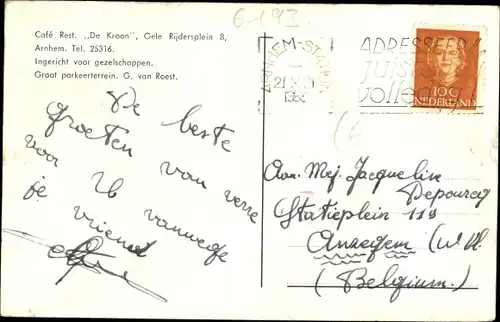 6-193
Café Rest. ,,De Kroon", Gele Rijdersplein 8,
Arnhem. Tel. 25316.
Ingericht voor gezelschappen.
Groot parkeerterrein. G. van Roest.
De beste
groeten van verre
voor Ub vanwege
je vriend
ARNHEM-STATION
ADRESSEER
juist
volledig
10c
NEDERLAND
Aan Mej. Jacqueline
Depourcq
Statieplein 119
Anzegem (W. Vl.
(Belgium)